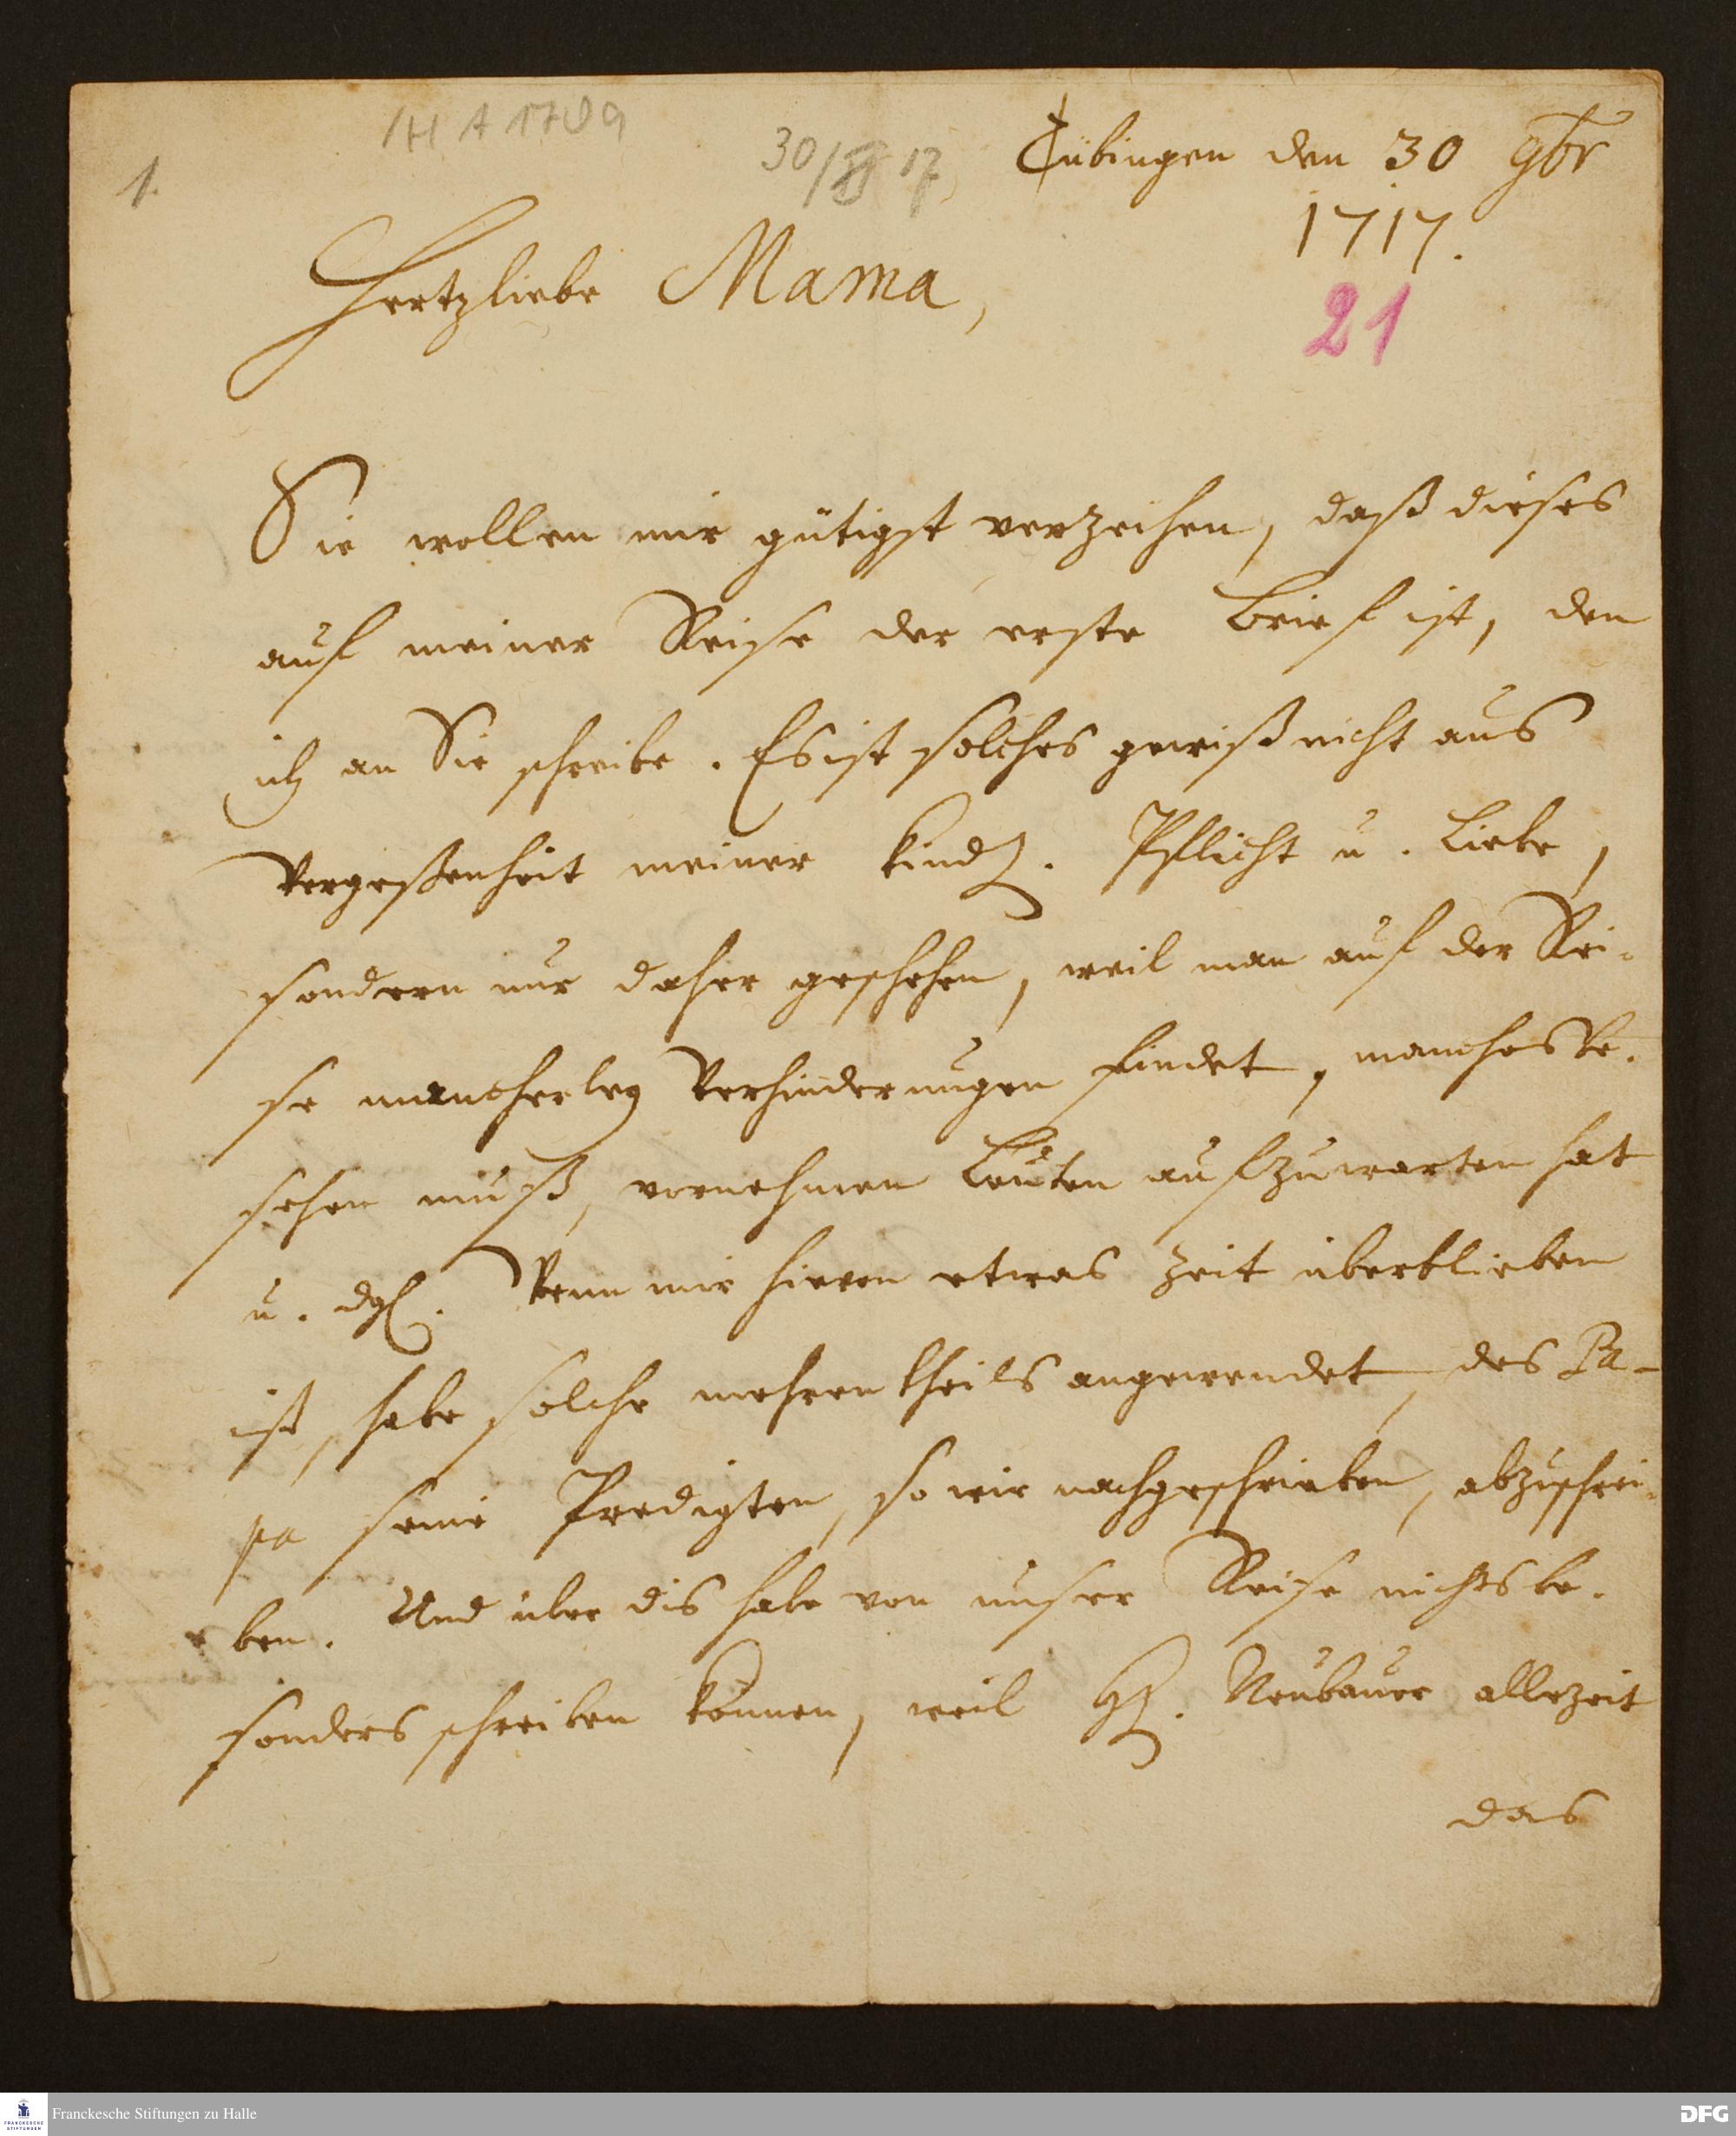 /H A 170a
1.
30/XI 17
Tübingen den 30 9br
1717.
21
Hertzliebe Mama,
Sie wollen mir gütigst verzeihen, daß dieses
auf meiner Reise der erste Brief ist, den
ich an Sie schreibe. Es ist solches gewiß nicht aus
Vergeßenheit meiner kindl. Pflicht u. Liebe,
sondern nur daher geschehen, weil man auf der Rei-
se mancherley Verhinderungen findet, manches be-
sehen muß, vornehmen Leuten aufzuwarten hat
u. dgl. Wenn mir hievon etwas Zeit überblieben
ist, habe solche mehrentheils angewendet, des Pa-
pa seine Predigten, so wir nachgeschrieben, abzuschrei-
ben. Und über dis habe von unser Reise nichts be-
sonders schreiben können, weil H. Neubauer allezeit
das
Franckesche Stiftungen zu Halle
FRANCKESCHE
STIFTUNGEN
DFG